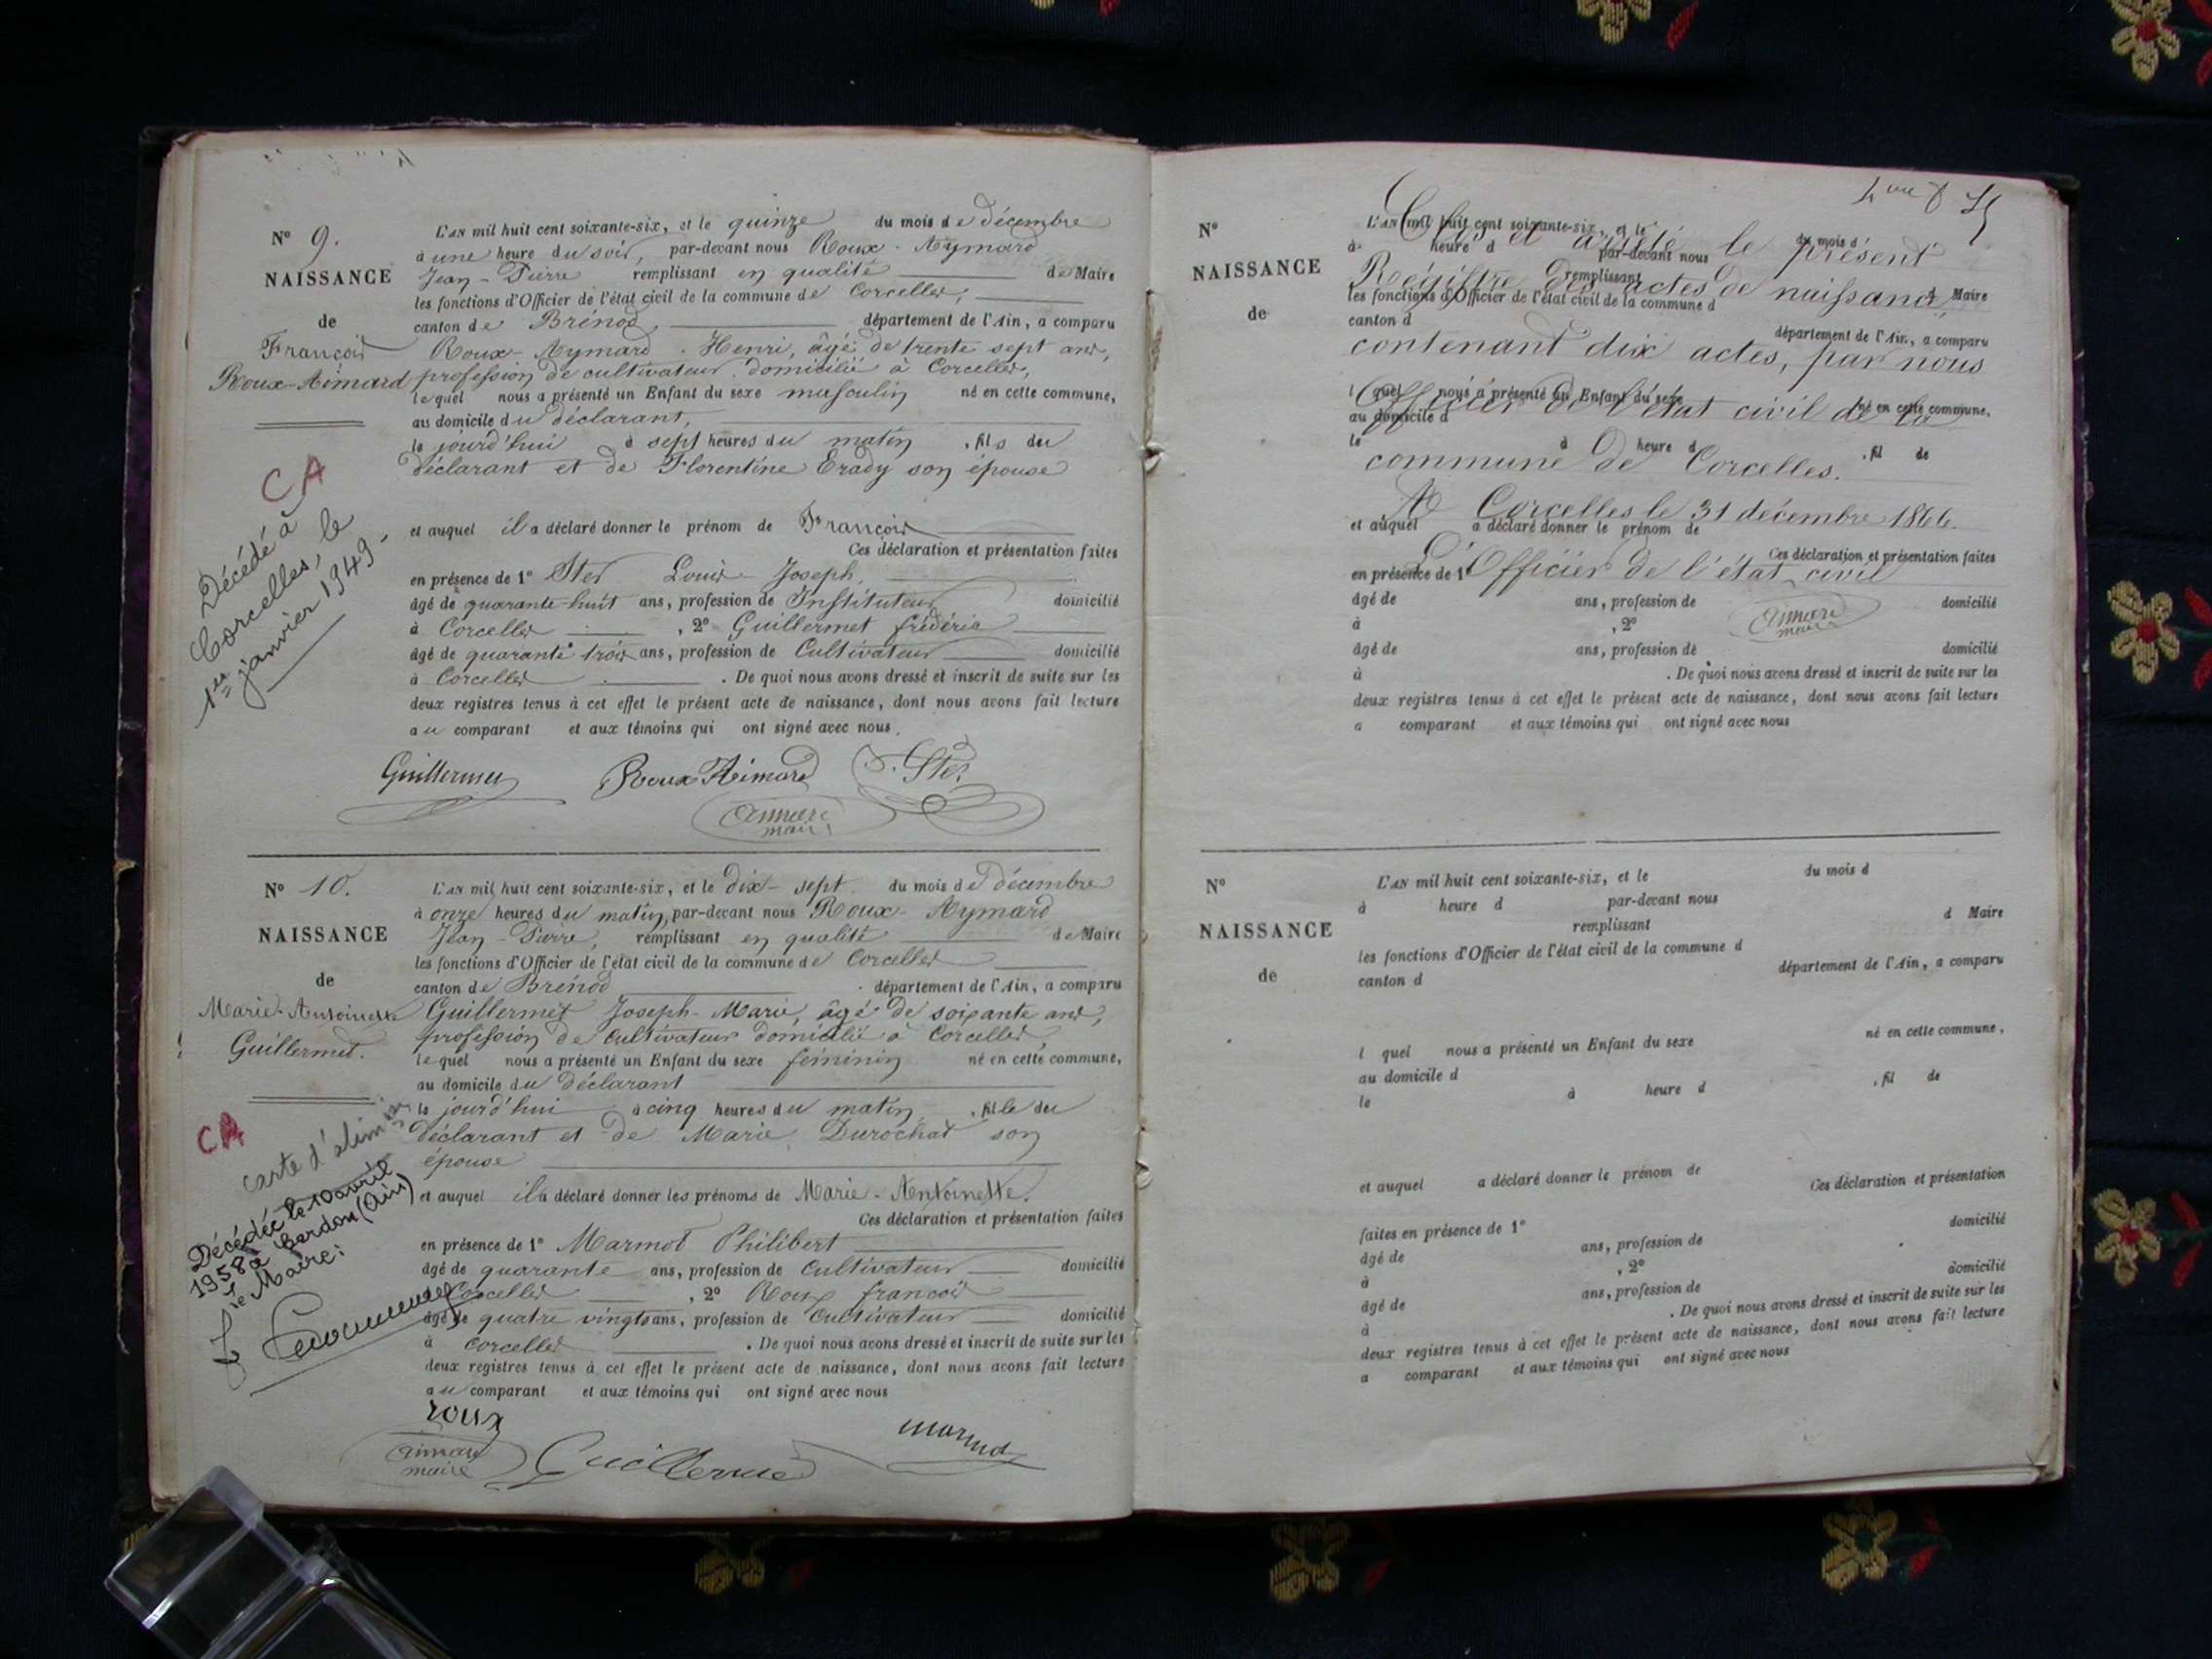 N° 9.
NAISSANCE
de
François
Roux-Aimard
L'AN mil huit cent soixante-six, et le quinze du mois de décembre
à une heure du soir, par-devant nous Roux-Aymard
Jean-Pierre remplissant en qualité de Maire
les fonctions d'Officier de l'état civil de la commune de Corcelles,
canton de Brénod, département de l'Ain, a comparu
Roux-Aymard Henri, âgé de trente sept ans,
profession de cultivateur domicilié à Corcelles,
lequel nous a présenté un Enfant du sexe masculin né en cette commune,
au domicile du déclarant,
le jourd'hui à sept heures du matin, fils du
déclarant et de Florentine Erady son épouse
et auquel il a déclaré donner le prénom de François
Ces déclaration et présentation faites
en présence de 1° Ster Louis-Joseph,
âgé de quarante huit ans, profession de Instituteur domicilié
à Corcelles, 2° Guillermet frédéric
âgé de quarante trois ans, profession de Cultivateur domicilié
à Corcelles. De quoi nous avons dressé et inscrit de suite sur les
deux registres tenus à cet effet le présent acte de naissance, dont nous avons fait lecture
au comparant et aux témoins qui ont signé avec nous.
CA
Décédé à
Corcelles, le
1er janvier 1949-
Guillermet Roux Aimard
maire
N° 10.
NAISSANCE
de
Marie-Antoinette
Guillermet.
L'AN mil huit cent soixante-six, et le dix-sept du mois de décembre
à onze heures du matin, par-devant nous Roux-Aymard
Jean-Pierre, remplissant en qualité de Maire
les fonctions d'Officier de l'état civil de la commune de Corcelles
canton de Brénod département de l'Ain, a comparu
Guillermet Joseph-Marie, âgé de soixante ans,
profession de cultivateur domicilié à Corcelles,
lequel nous a présenté un Enfant du sexe féminin né en cette commune,
au domicile du déclarant
le jourd'hui à cinq heures du matin, fille du
déclarant et de Marie Durochat son
épouse
et auquel il a déclaré donner les prénoms de Marie-Antoinette.
Ces déclaration et présentation faites
en présence de 1° Marmot Philibert
âgé de quarante ans, profession de Cultivateur domicilié
Corcelles, 2° Roux francois
âgé de quatre vingts ans, profession de Cultivateur domicilié
à Corcelles. De quoi nous avons dressé et inscrit de suite sur les
deux registres tenus à cet effet le présent acte de naissance, dont nous avons fait lecture
au comparant et aux témoins qui ont signé avec nous
CA
carte d'alim
Décédée le 10 avril
1958 à Cerdon (Ain)
Le Maire:
roux
maire Guillermet marmot
N°
NAISSANCE
de
L'AN mil huit cent soixante-six, et le du mois d
à heure d par-devant nous
remplissant d Maire
les fonctions d'Officier de l'état civil de la commune d
canton d département de l'Ain, a comparu
l quel nous a présenté un Enfant du sexe né en cette commune,
au domicile d
le à heure d , fil de
et auquel a déclaré donner le prénom de
Ces déclaration et présentation faites
en présence de 1°
âgé de ans, profession de domicilié
à , 2°
âgé de ans, profession de domicilié
à . De quoi nous avons dressé et inscrit de suite sur les
deux registres tenus à cet effet le présent acte de naissance, dont nous avons fait lecture
a comparant et aux témoins qui ont signé avec nous
Clos et arrêté le présent
Régistre des actes de naissance,
contenant dix actes, par nous
Officier de l'état civil de la
commune de Corcelles.
A Corcelles le 31 décembre 1866.
L'Officier de l'état civil
maire
N°
NAISSANCE
de
L'AN mil huit cent soixante-six, et le du mois d
à heure d par-devant nous
remplissant d Maire
les fonctions d'Officier de l'état civil de la commune d
canton d département de l'Ain, a comparu
l quel nous a présenté un Enfant du sexe né en cette commune,
au domicile d
le à heure d , fil de
et auquel a déclaré donner le prénom de
Ces déclaration et présentation
faites en présence de 1° domicilié
âgé de ans, profession de
à , 2° domicilié
âgé de ans, profession de
à . De quoi nous avons dressé et inscrit de suite sur les
deux registres tenus à cet effet le présent acte de naissance, dont nous avons fait lecture
a comparant et aux témoins qui ont signé avec nous